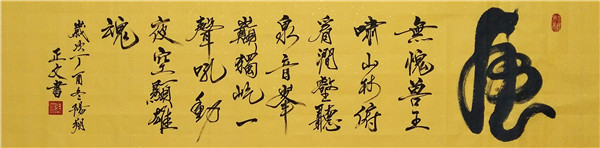 虎
無愧兽王
嘯山林俯
看澗壑聽
泉音峯
巔獨屹一
聲吼動
夜空顯雄
魂
歲次丁酉冬陽朔
正文書